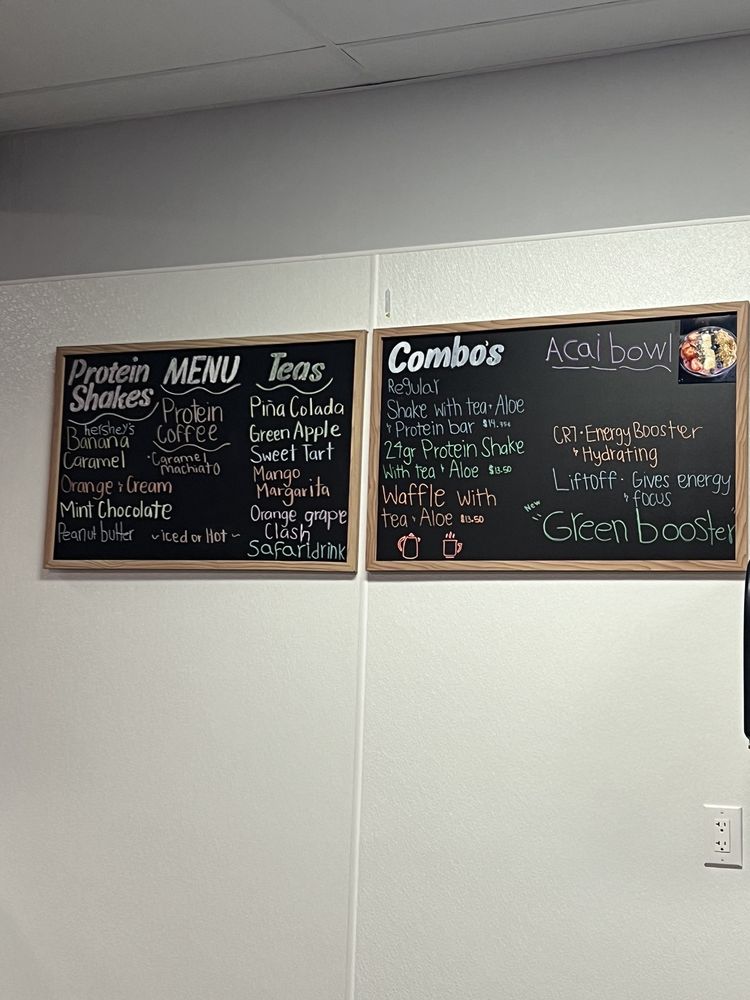 Protein
Shakes
hershey's
Banana
Caramel
Orange & Cream
Mint Chocolate
Peanut butter
MENU
Protein
Coffee
·Caramel
machiato
~iced or Hot~
Teas
Piña Colada
Green Apple
Sweet Tart
Mango
Margarita
Orange grape
Clash
Safari drink
Combo's
Regular
Shake with tea & Aloe
& Protein bar
24gr Protein Shake
with tea & Aloe $13.50
Waffle with
tea & Aloe $13.50
Acai bowl
CR7·Energy Booster
& Hydrating
Liftoff· Gives energy
& focus
New
"Green booster"